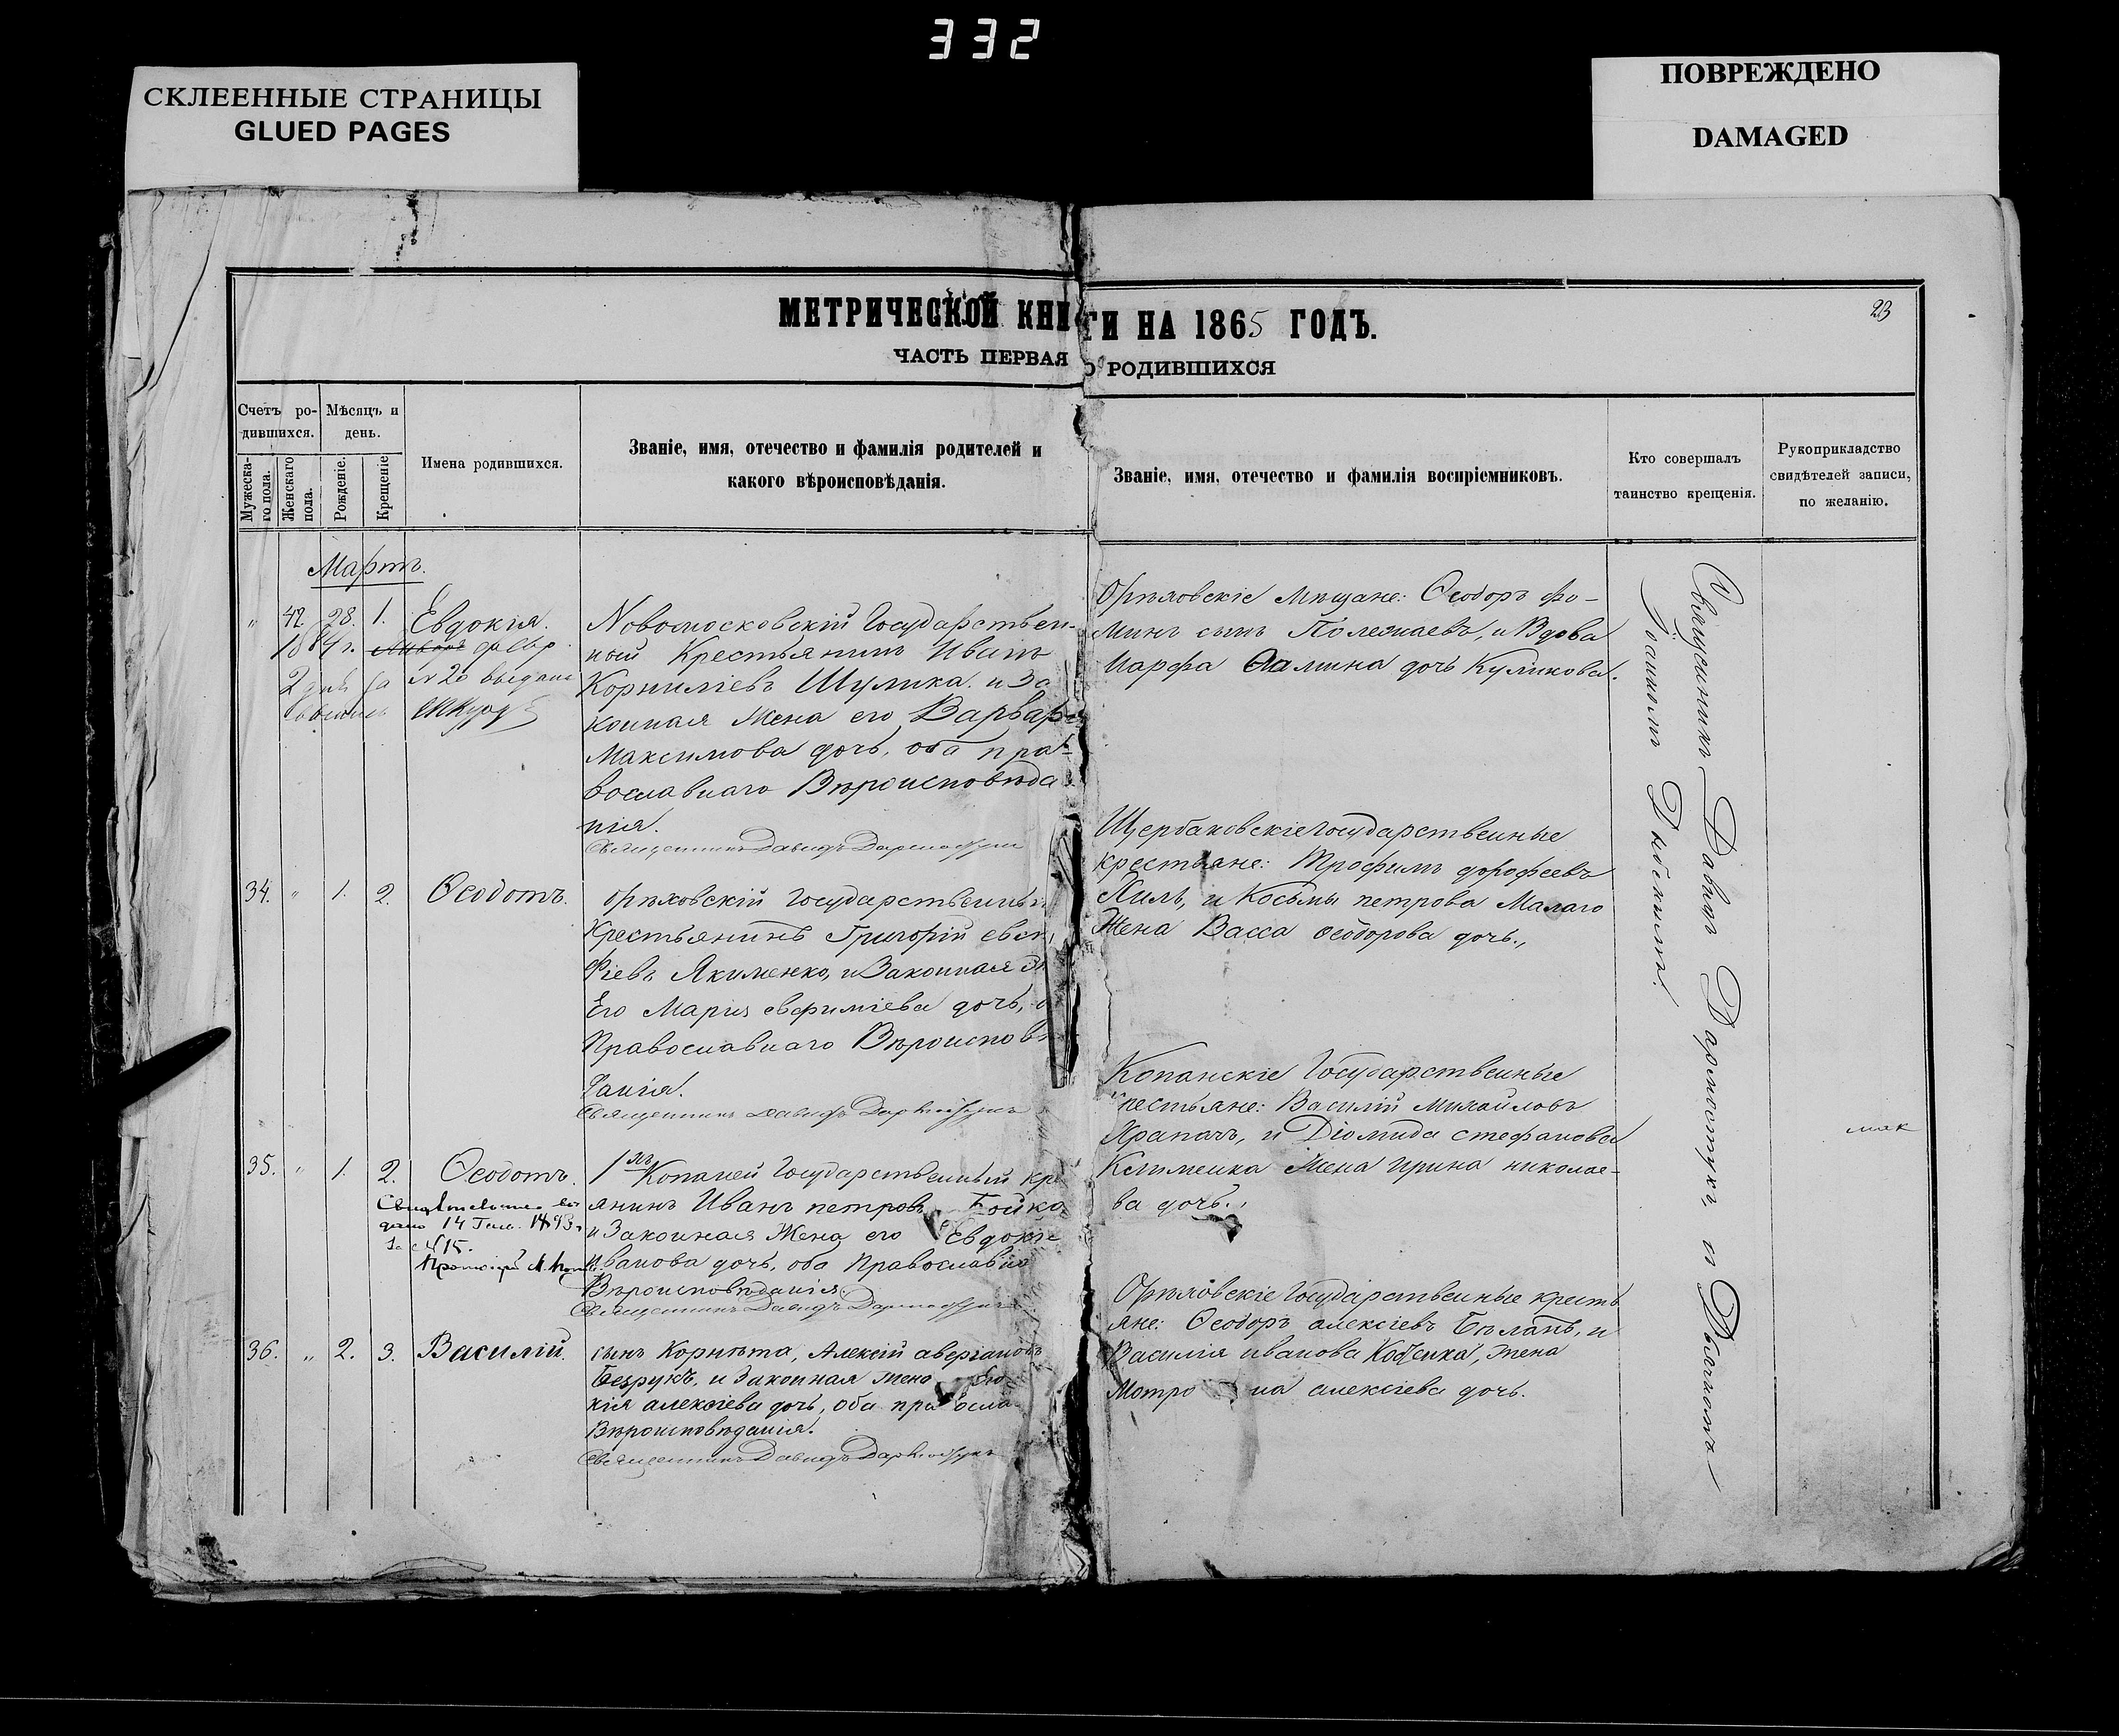 332
СКЛЕЕННЫЕ СТРАНИЦЫ
GLUED PAGES
ПОВРЕЖДЕНО
DAMAGED
МЕТРИЧЕСКОЙ КНИГИ НА 1865 ГОДЪ.
23
ЧАСТЬ ПЕРВАЯ О РОДИВШИХСЯ
Счетъ ро-
дившихся.
Мужеска-
го пола.
Женскаго
пола.
Мѣсяцъ и
день.
Рожденіе.
Крещеніе
Имена родившихся.
Званіе, имя, отечество и фамилія родителей и
какого вѣроисповѣданія.
Званіе, имя, отечество и фамилія воспріемниковъ.
Кто совершалъ
таинство крещенія.
Рукоприкладство
свидѣтелей записи,
по желанію.
Мартъ.
" 42. 28. 1. Евдокія.
№ 20 выдана
Новомосковскій Государствен-
ный Крестьянинъ Иванъ
Корниліевъ Шулика. и За
конная Жена его Варвар
Максимова дочь, оба пра-
вославнаго Вѣроисповѣда
нія.
Священникъ Давидъ
Орѣховскіе Мѣщане: Ѳеодоръ Фо-
минъ сынъ Полежаевъ, и Вдова
Марфа Фомина дочь Куликова.
34. " 1. 2. Ѳеодотъ.
Орѣховскій Государственны
Крестьянинъ Григорій евст
фіевъ Якименко, и Законная
Его Марія евфиміева дочь,
Православнаго Вѣроисповѣ
данія.
Священникъ Давидъ
Щербаковскіе Государственные
крестьяне: Трофимъ дорофеевъ
Хиль, и Косьмы петрова Малаго
Жена Васса ѳеодорова дочь.,
35. " 1. 2. Ѳеодотъ.
14 1893
№ 15.
Копаней Государственный кре
янинъ Иванъ петровъ Бойко
и Законная Жена его Евдокіе
Иванова дочь, оба Православна
Вѣроисповѣданія.
Священникъ Давидъ
Копанскіе Государственные
крестьяне: Василій Михайловъ
Храпачъ, и Діомида стефанова
Клименка Жена Ирина николае-
ва дочь.,
36. " 2. 3. Василій.
сынъ Корнѣта, Алексій аверіановъ
Безрукъ, и Законная жена
кія алексіева дочь, оба пра осла
Вѣроисповѣданія.
Священникъ Давидъ
Орѣховскіе Государственные кресть
яне: Ѳеодоръ алексіевъ Бѣланъ, и
Василія иванова жена
Мотро на алексіева дочь.
Священникъ Давидъ и Дьякономъ